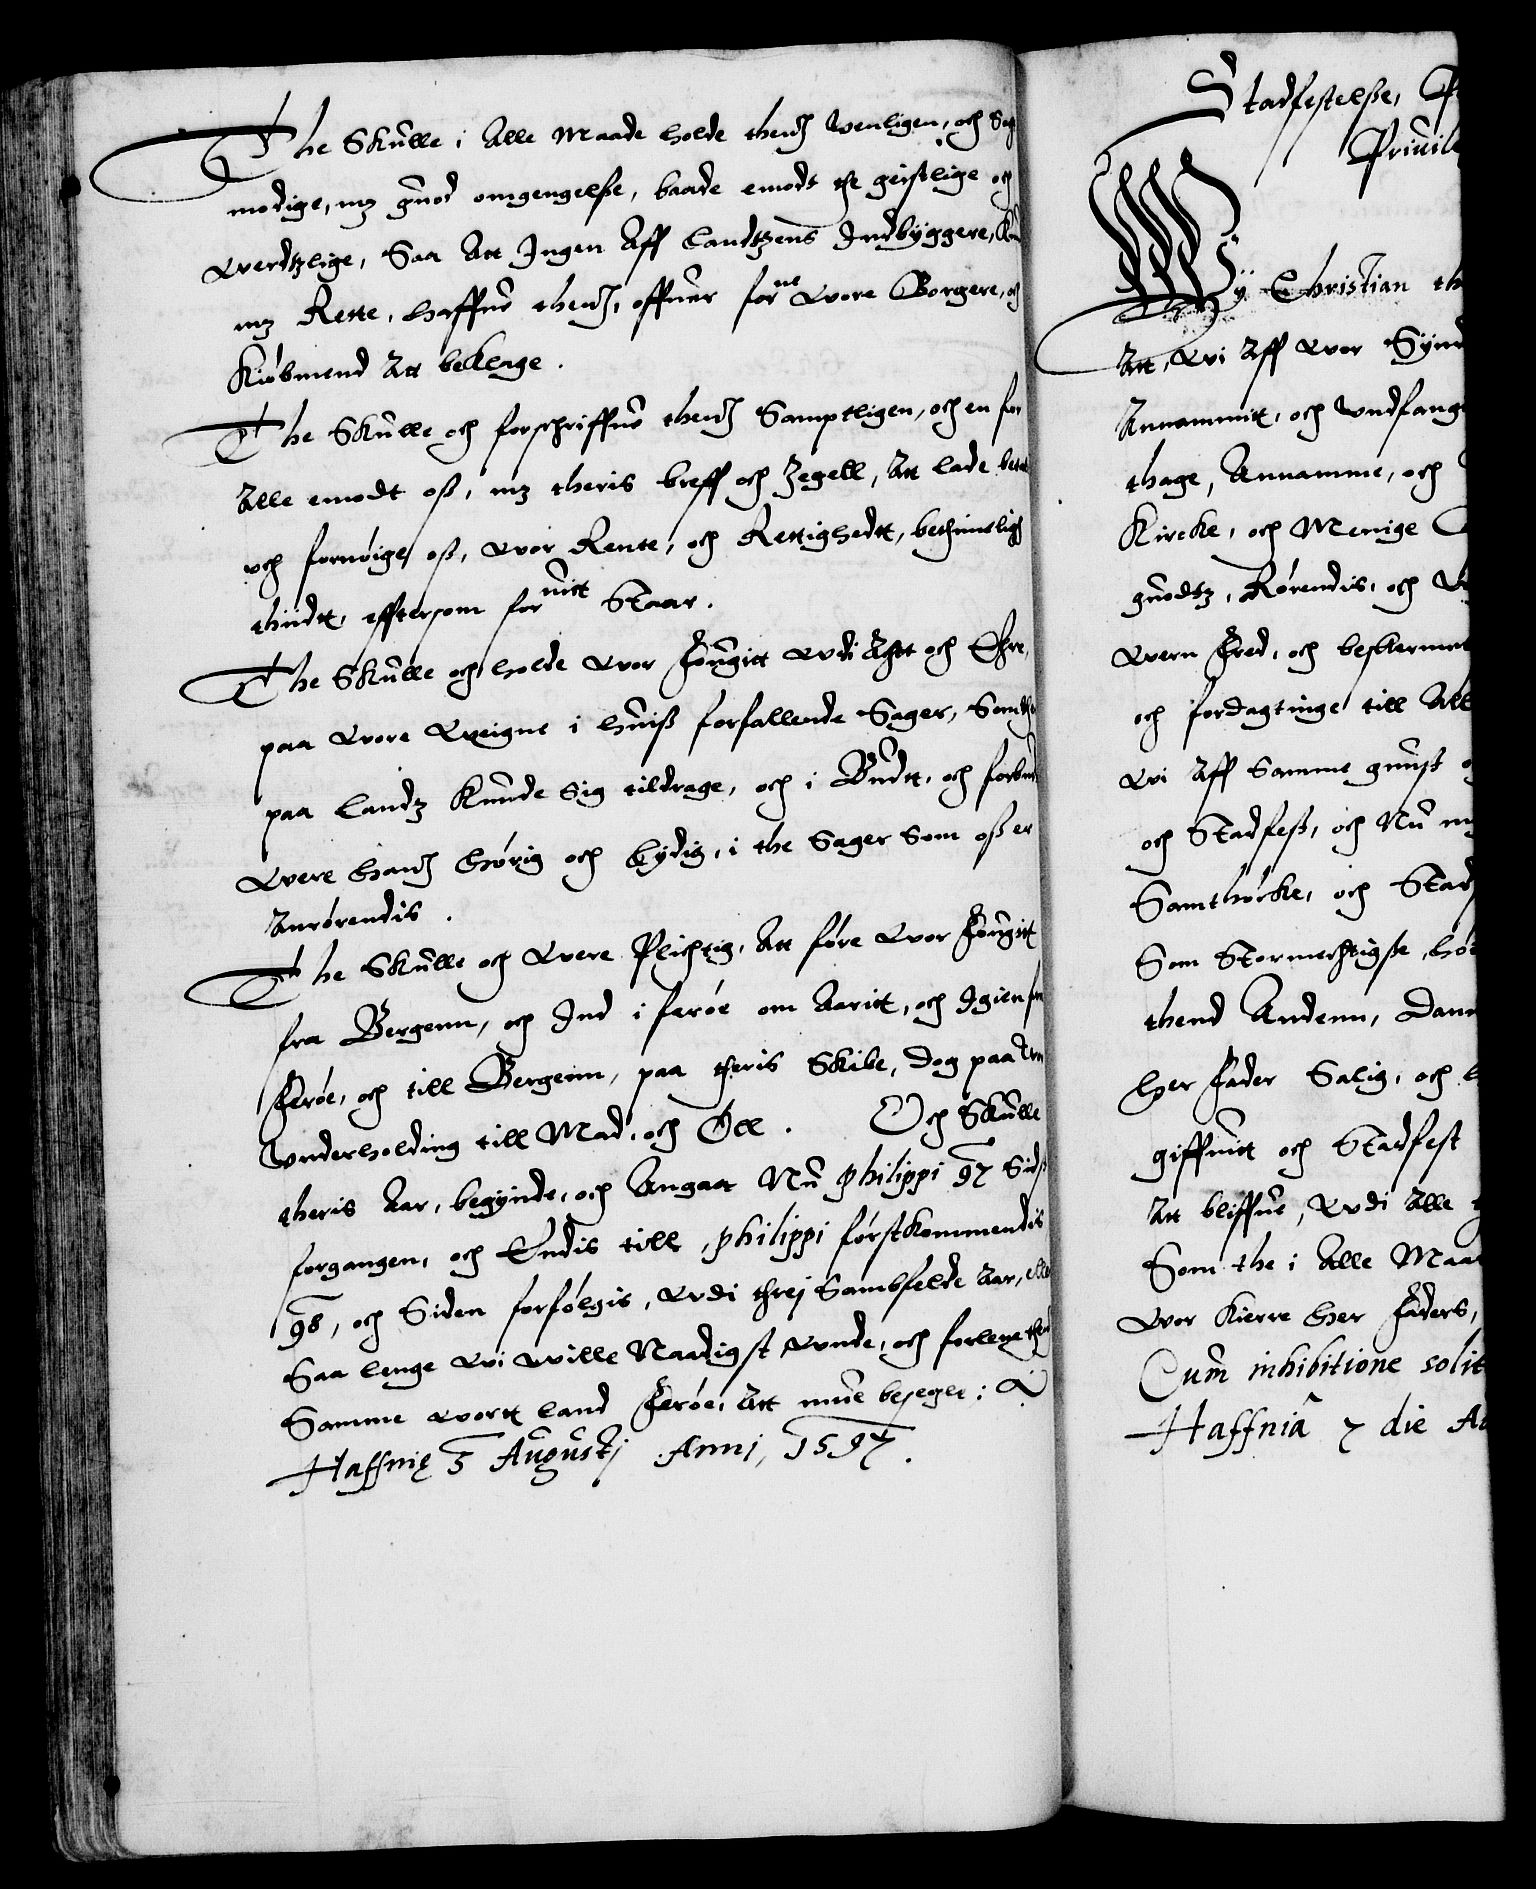 The Skulle i Alle Maade holde thend wenligen, och Sag
modige, mz guod omgengelse, baade emodt the geistlige och
werdtzlige, Saa Att Ingen Aff Landtzens Indbyggere, Kand
mz Rette, haffue thend, offuer forne wore Borgere, och
Kiøbmend Att beklage.
The Skulle och forschriffue thend Samptligen, och en for
Alle emodt oss, mz theris breff och Zegell, Att lade betale
och fornøige oss, wor Rente, och Rettighedt, bethimeligh
thiidt, efftersom fornitt Staar.
The Skulle och holde wor Fougitt wdi Agtt och Ehre,
paa wore weigne i huiss forfallende Sager, Som ther
paa Landz Kunde Sig tildrage, och i Budtt, och forbud
were hand hørig och Lydig, i the Sager Som oss er
Anrørendis.
The Skulle och were Plichtig, Att føre wor Fougitt
fra Bergenn, och Ind i ferøe om Aaritt, och Igien fra
Ferøe, och till Bergenn, paa theris Skibe, Dog paa
wnderholding till Mad, och Øll. Och Skulle
theris Aar, begynde, och Angaa Nu philippi 97 Sidst
forgangen, och Endis till philippi førstkommendis
98, och Siden forfølgis, wdi threj Sambfelde Aar, eller
Saa lenge wi wille Naadigst wnde, och forlene thend
Samme wortt Land Ferøe, Att mue besegle:
Haffnię 3 Augustj Annj, 1597.
Stadfestelse,
Priuile
Wy Christian th
Att, wi Aff wor Synd
Annammitt, och wndfang
thage, Annamme, och
Kircke, och Menige
guodtz, Rørendis, och
wern Fred, och beskermel
och fordagtinge till All
wi Aff Samme gunst
och Stadfest, och Nu mz
Samthøcke, och Stad
Som Stormechtigste, hø
thend Andenn, Dan
her Fader Salig, och
giffuitt och Stadfest
Att bliffue, wdi Alle
Som the i Alle Maa
wor Kierre her Faders,
Cum inhibitione solit
Haffniâ 7 die A